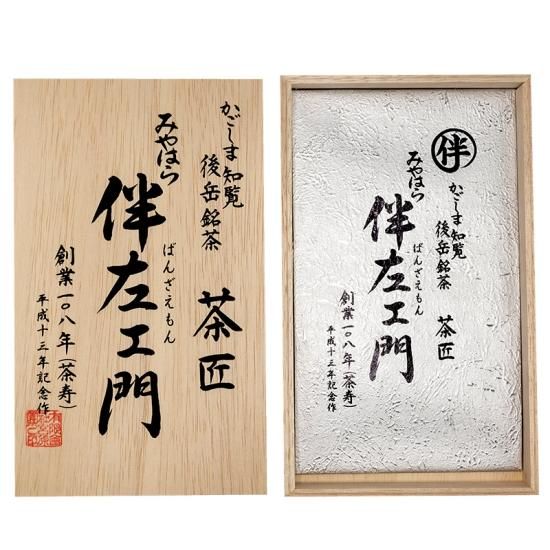 かごしま知覧
後岳銘茶
茶匠
みやはら
伴左エ門
ばんざえもん
創業一〇八年(茶寿)
平成十三年記念作
伴
かごしま知覧
後岳銘茶
茶匠
みやはら
伴左エ門
ばんざえもん
創業一〇八年(茶寿)
平成十三年記念作